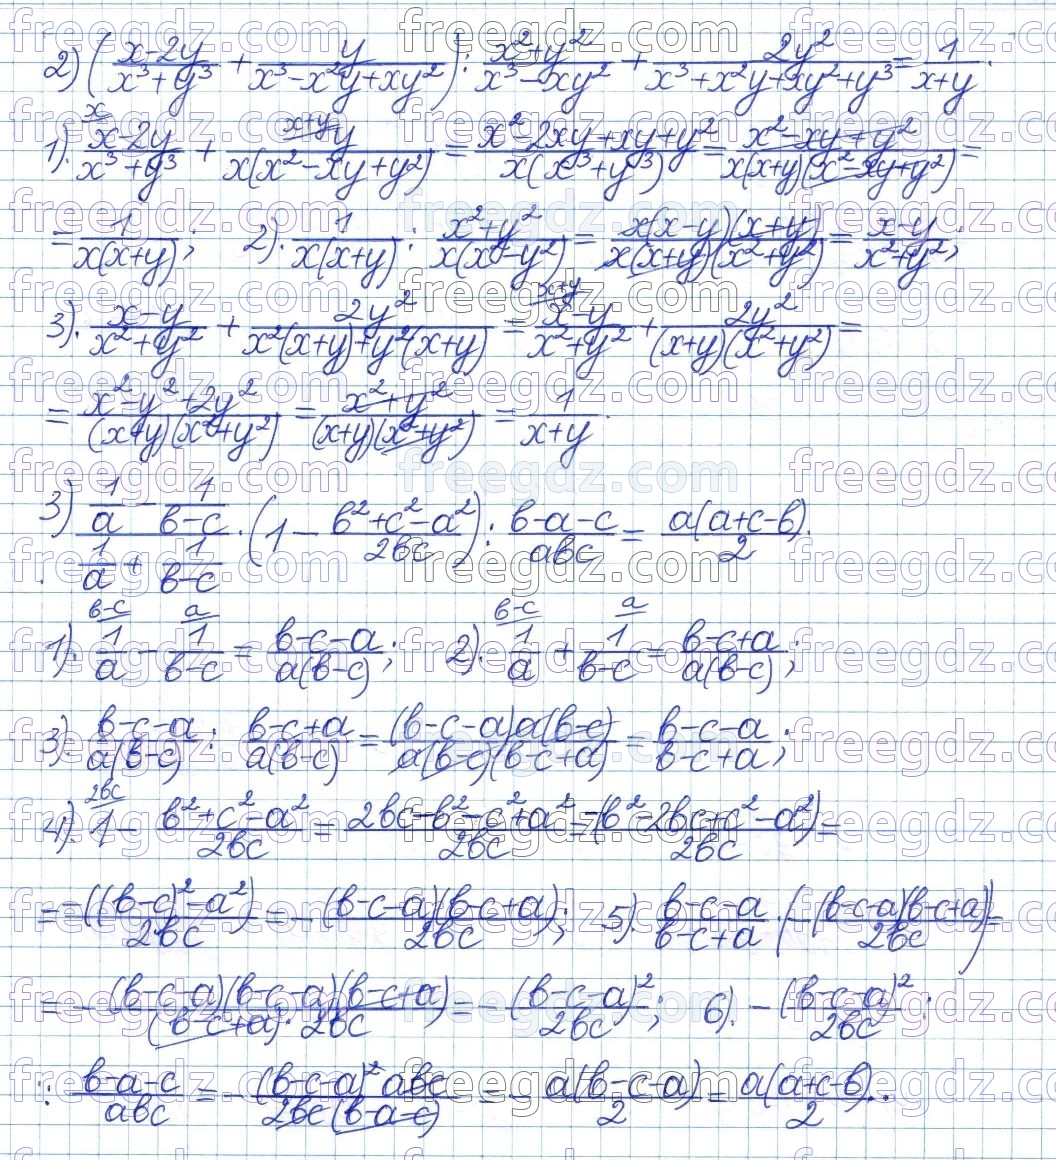 2) ((x-2y)/(x³+y³) + y/(x³-x²y+xy²)) : (x²+y²)/(x³-xy²) + 2y²/(x³+x²y+xy²+y³) = 1/(x+y).
1). (x-2y)/(x³+y³) + y/(x(x²-xy+y²)) = (x²-2xy+xy+y²)/(x(x³+y³)) = (x²-xy+y²)/(x(x+y)(x²-xy+y²)) =
= 1/(x(x+y)); 2). 1/(x(x+y)) : (x²+y²)/(x(x²-y²)) = (x(x-y)(x+y))/(x(x+y)(x²+y²)) = (x-y)/(x²+y²);
3). (x-y)/(x²+y²) + 2y²/(x²(x+y)+y²(x+y)) = (x-y)/(x²+y²) + 2y²/((x+y)(x²+y²)) =
= (x²-y²+2y²)/((x+y)(x²+y²)) = (x²+y²)/((x+y)(x²+y²)) = 1/(x+y).
3) (1/a - 1/(в-c))/(1/a + 1/(в-c)) · (1 - (в²+c²-a²)/(2вc)) : (в-a-c)/(aвc) = (a(a+c-в))/2.
1). 1/a - 1/(в-c) = (в-c-a)/(a(в-c)); 2). 1/a + 1/(в-c) = (в-c+a)/(a(в-c));
3). (в-c-a)/(a(в-c)) : (в-c+a)/(a(в-c)) = ((в-c-a)a(в-c))/(a(в-c)(в-c+a)) = (в-c-a)/(в-c+a);
4). 1 - (в²+c²-a²)/(2вc) = (2вc-в²-c²+a²)/(2вc) = (-(в²-2вc+c²-a²))/(2вc) =
= (-((в-c)²-a²))/(2вc) = - ((в-c-a)(в-c+a))/(2вc); 5). (в-c-a)/(в-c+a) · (- ((в-c-a)(в-c+a))/(2вc)) =
= - ((в-c-a)(в-c-a)(в-c+a))/((в-c+a)·2вc) = - (в-c-a)²/(2вc); 6). - (в-c-a)²/(2вc) :
: (в-a-c)/(aвc) = - ((в-c-a)²aвc)/(2вc(в-a-c)) = - (a(в-c-a))/2 = (a(a+c-в))/2.
freegdz.com